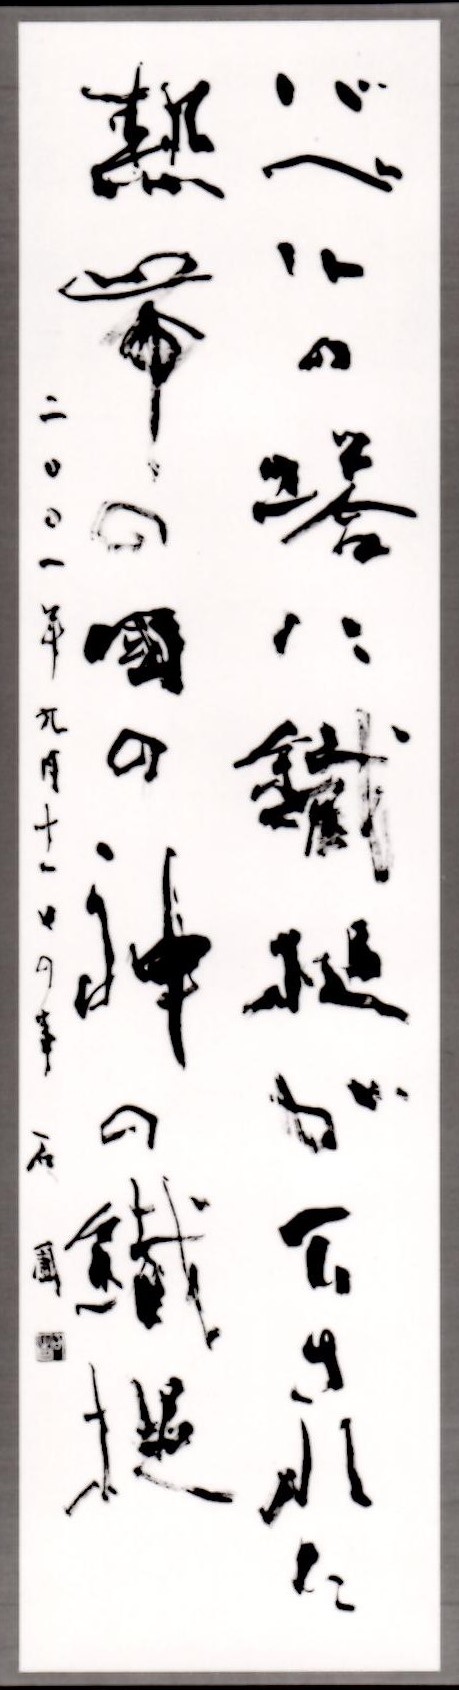 バベルの塔に鐵槌が下された
熱帯の國の神の鐵槌
二〇〇一年九月十一日の事 石